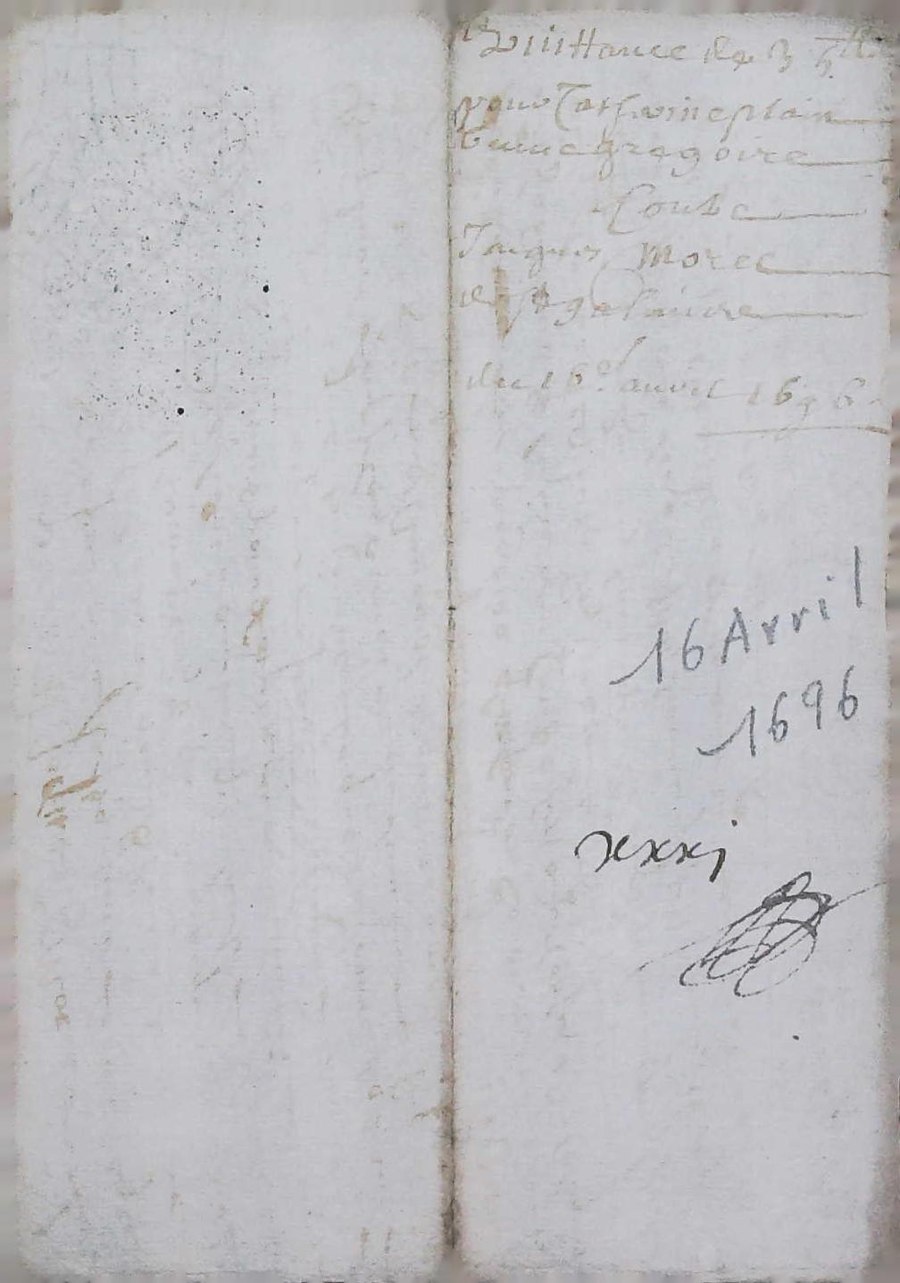 Quittance de 3
pour Catherine plain
Veuve gregoire
Contre
Jacques Morel
de
du 16e avril 1696
16 Avril
1696
xxxj